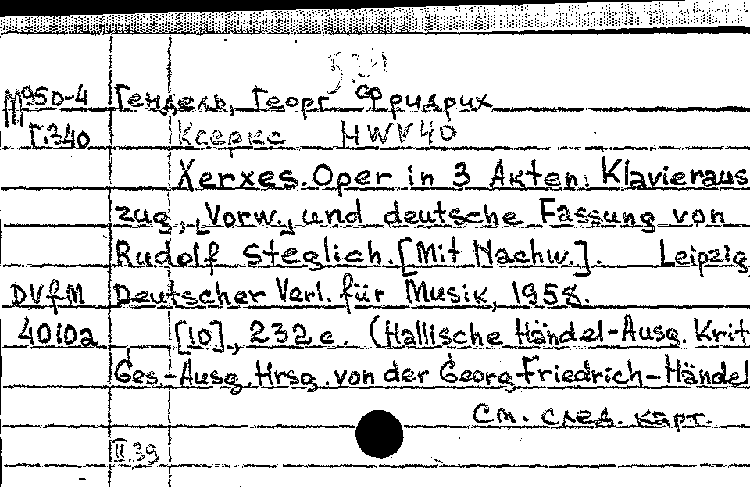 534
М950-4 Гендель, Георг Фридрих
Г.340 Ксеркс HWV 40
Xerxes. Oper in 3 Akten. Klavieraus
zug, [Vorw.] und deutsche Fassung von
Rudolf Steglich. [Mit Nachw.]. Leipzig
DVfM Deutscher Verl. für Musik, 1958.
4010a [10], 232 с. (Hallische Händel-Ausg. Krit
Ges.-Ausg. Hrsg. von der Georg-Friedrich-Händel
См. след. карт.
II.39